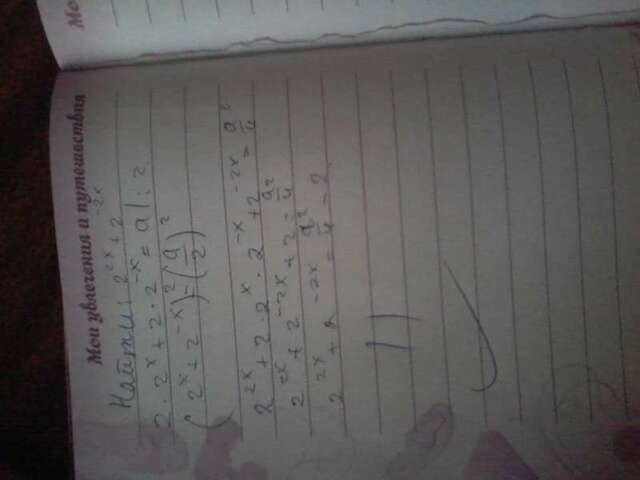 Мои увлечения и путешествия
Найти: 2^{2x} + 2^{-2x}
2 · 2^x + 2 · 2^{-x} = a | : 2
(2^x + 2^{-x})^2 = (a/2)^2
2^{2x} + 2 · 2^x · 2^{-x} + 2^{-2x} = a^2/4
2^{2x} + 2^{-2x} + 2 = a^2/4
2^{2x} + 2^{-2x} = a^2/4 - 2
Мо